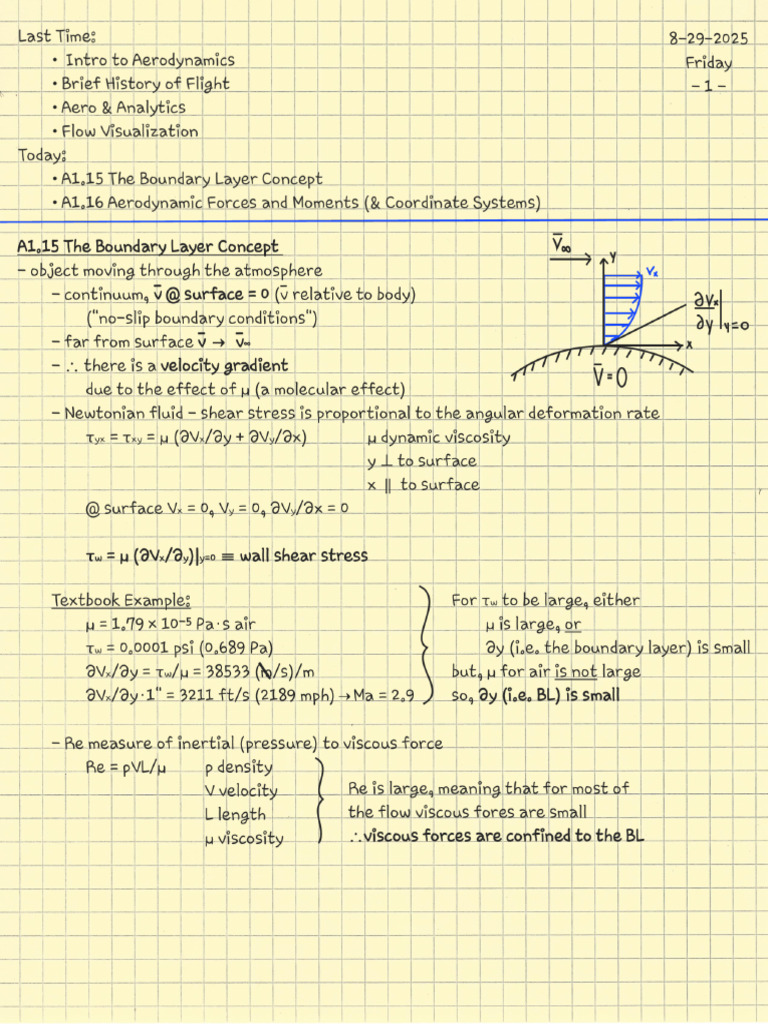 Last Time:
• Intro to Aerodynamics
• Brief History of Flight
• Aero & Analytics
• Flow Visualization
8-29-2025
Friday
- 1 -
Today:
• A1.15 The Boundary Layer Concept
• A1.16 Aerodynamic Forces and Moments (& Coordinate Systems)
A1.15 The Boundary Layer Concept
- object moving through the atmosphere
- continuum, v̄ @ surface = 0 (v̄ relative to body)
("no-slip boundary conditions")
- far from surface v̄ → v̄∞
- ∴ there is a velocity gradient
due to the effect of μ (a molecular effect)
V̄∞
y
Vₓ
∂Vₓ/∂y|y=0
x
V̄ = 0
- Newtonian fluid - shear stress is proportional to the angular deformation rate
τyx = τxy = μ (∂Vₓ/∂y + ∂Vy/∂x)
μ dynamic viscosity
y ⊥ to surface
x ∥ to surface
@ surface Vₓ = 0, Vy = 0, ∂Vy/∂x = 0
τw = μ (∂Vₓ/∂y)|y=0 ≡ wall shear stress
Textbook Example:
μ = 1.79 × 10⁻⁵ Pa·s air
τw = 0.0001 psi (0.689 Pa)
∂Vₓ/∂y = τw/μ = 38533 (m/s)/m
∂Vₓ/∂y·1" = 3211 ft/s (2189 mph) → Ma = 2.9
For τw to be large, either
μ is large, or
∂y (i.e. the boundary layer) is small
but, μ for air is not large
so, ∂y (i.e. BL) is small
- Re measure of inertial (pressure) to viscous force
Re = ρVL/μ
ρ density
V velocity
L length
μ viscosity
Re is large, meaning that for most of
the flow viscous fores are small
∴ viscous forces are confined to the BL